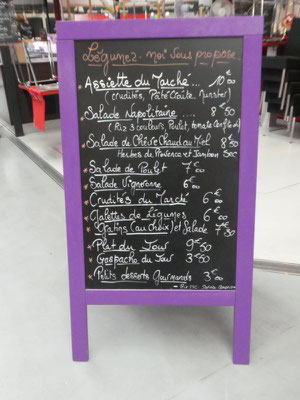 Légumez-moi vous propose
Assiette du Marché... 10€00
(crudités, Pâté Claile, Munster)
Salade Napolitaine .... 8€50
(Riz 3 couleurs, Poulet, tomate confite)
Salade de Chèvre Chaud au Miel 8€50
Herbes de Provence et Jambon Sec
Salade de Poulet 7€00
Salade Vigneronne 6€00
Crudités du Marché 6€00
Galettes de Légumes 6€00
Gratins (au choix) et Salade 7€50
Plat du Jour 9€50
Gaspacho du Jour 3€50
Petits desserts Gourmands 3€00